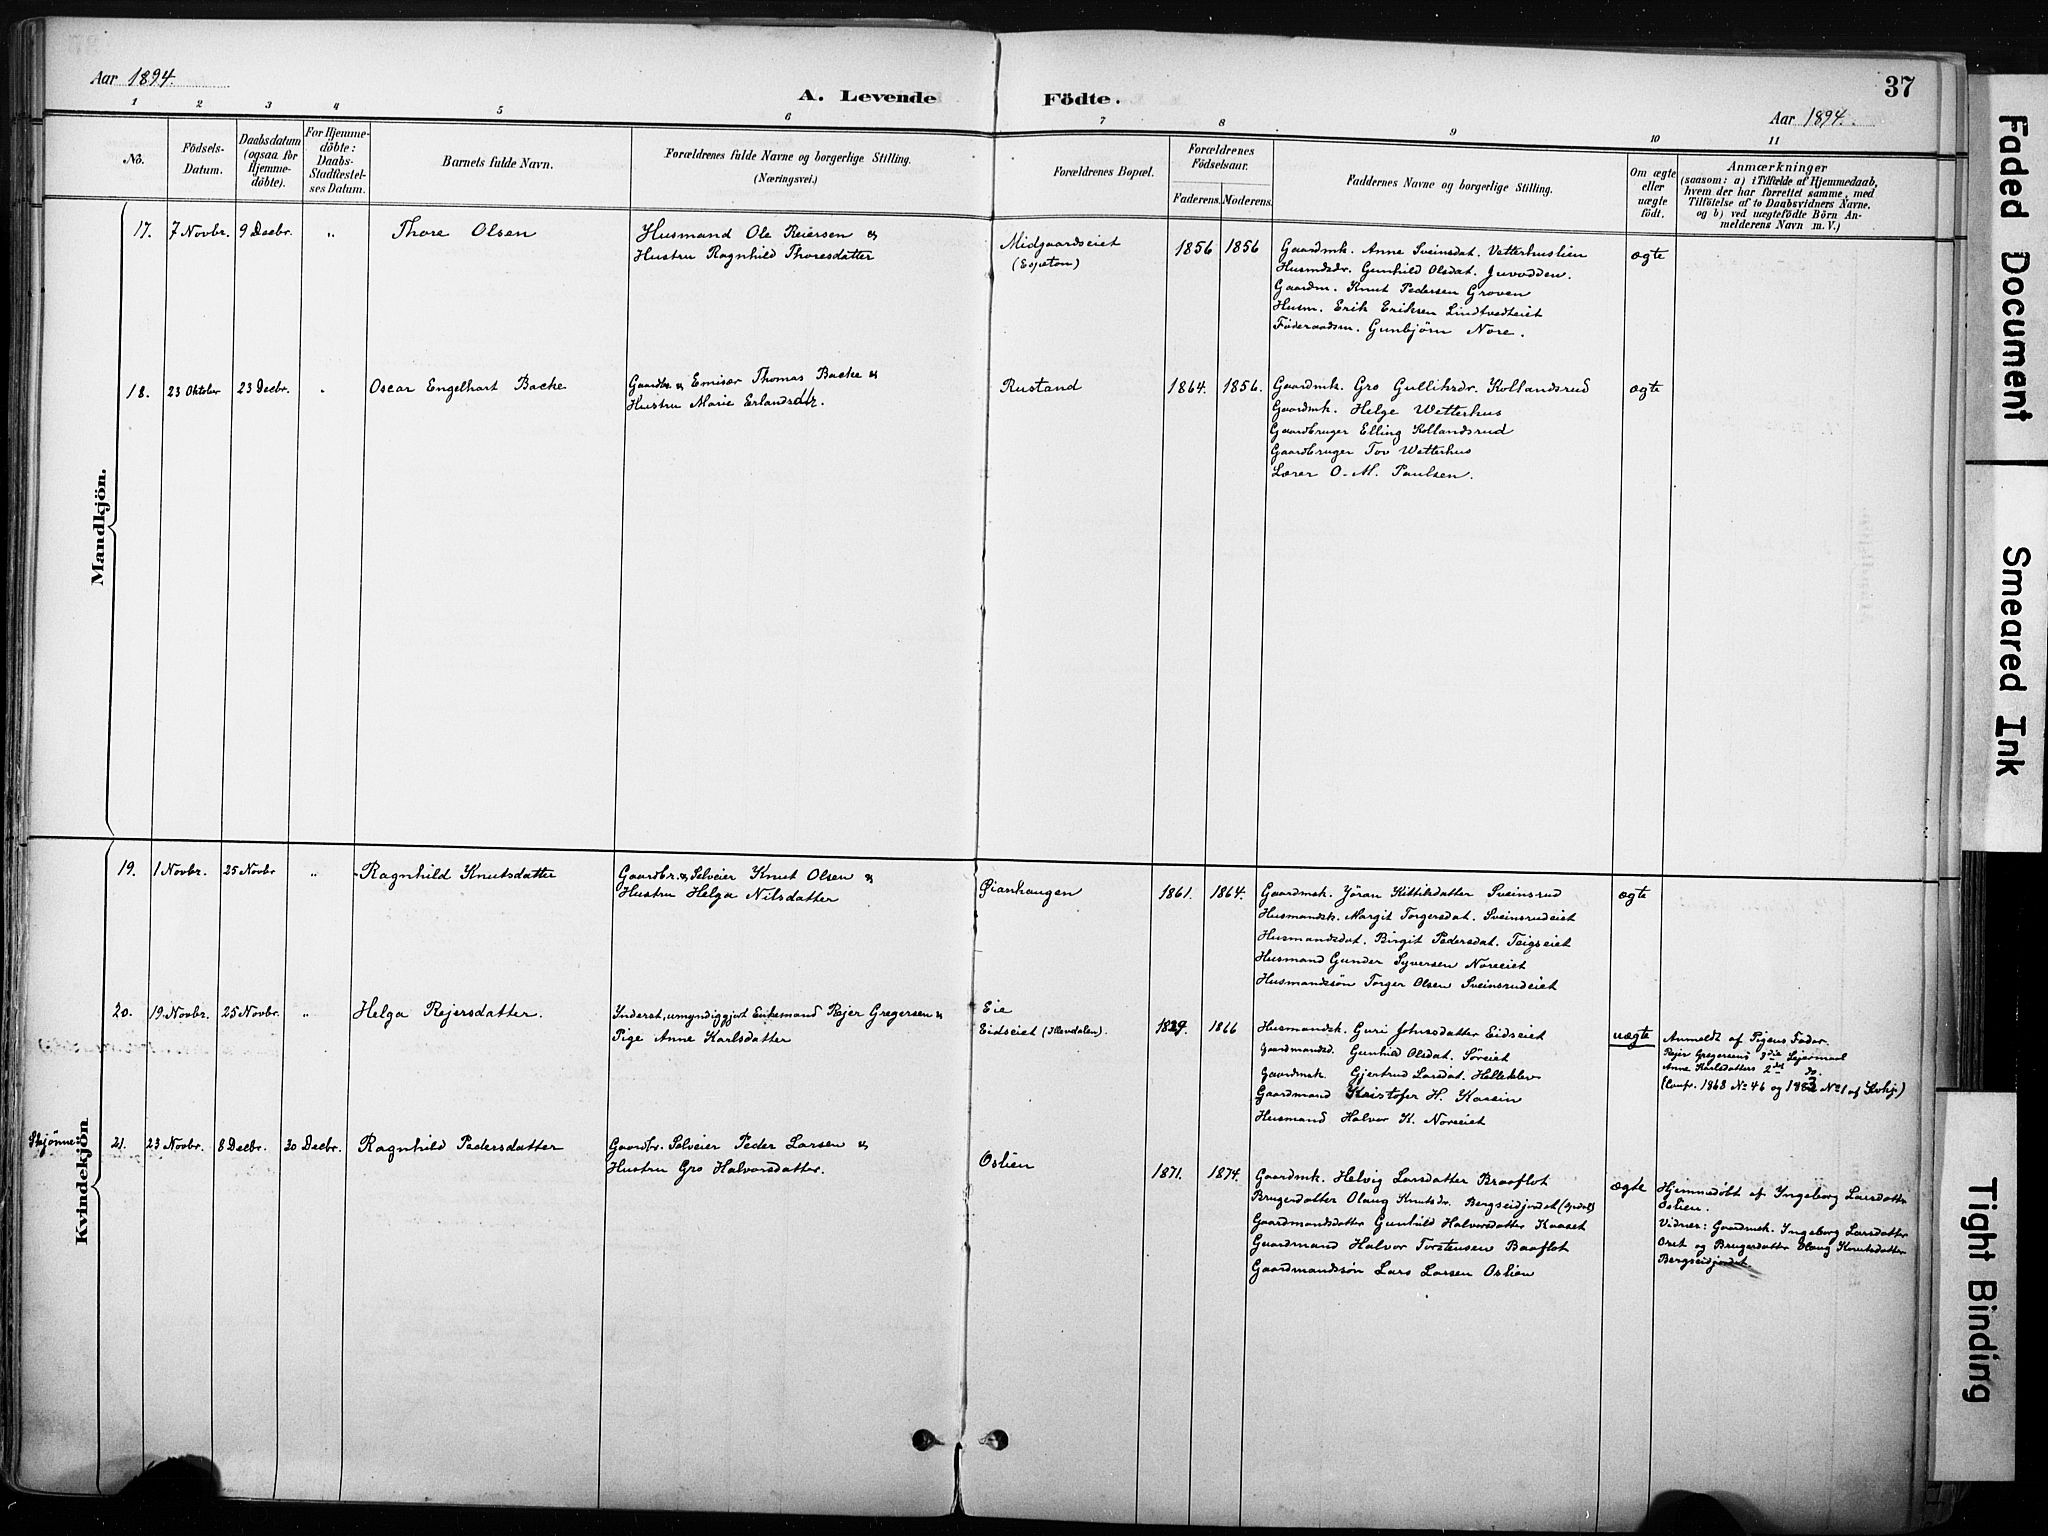 Aar 1894.
A. Levende Födte.
37
Aar 1894.
1 2 3 4 5 6 7 8 9 10 11
No.
Födsels-
Datum.
Daabsdatum
(ogsaa for
Hjemme-
döbte).
For Hjemme-
döbte:
Daabs-
Stadfæstel-
ses Datum.
Barnets fulde Navn.
Forældrenes fulde Navne og borgerlige Stilling.
(Næringsvei.)
Forældrenes Bopæl.
Forældrenes
Födselsaar.
Faderens. Moderens.
Faddernes Navne og borgerlige Stilling.
Om ægte
eller
uægte
födt.
Anmærkninger
(saasom: a) i Tilfælde af Hjemmedaab,
hvem der har forrettet samme, med
Tilföielse af to Daabsvidners Navne.
og b) ved uægtefödte Börn An-
melderens Navn m. V.)
Mandkjön.
17. 7 Novbr. 9 Decbr. „ Thore Olsen
Husmand Ole Reiersen &
Hustru Ragnhild Thoresdatter
Midgaardseiet
(Espeton)
1856 1856
Gaardmk. Anne Sveinsdat. Vetterhuslien
Husmdsdr. Gunhild Olsdat. Juvodden.
Gaardm. Knut Pedersen Groven
Husm. Erik Eriksen Lindtvedteiet
Föderaadsm. Gunbjörn Nore.
ægte
18. 23 Oktober 23 Decbr. „ Oscar Engelhart Backe
Gaardbr. & Emisær Thomas Backe &
Hustru Marie Erlandsdtr.
Rustand
1864. 1856.
Gaardmk. Gro Gulliksdr. Kollandsrud
Gaardmk. Helge Wetterhus
Gaardbruger Elling Kollandsrud
Gaardbruger Tov Wetterhus
Lærer O. M. Paulsen.
ægte
Kvindekjön
19. 1 Novbr. 25 Novbr „ Ragnhild Knutsdatter
Gaardbr. & Selveier Knut Olsen &
Hustru Helga Nilsdatter
Øianhaugen
1861. 1864.
Gaardmsk. Jöran Kittilsdatter Sveinsrud
Husmandsk. Margit Torgersdat. Sveinsrudeiet
Husmandsdat. Birgit Pedersdat. Teigseiet
Husmand Gunder Syversen Noreeiet
Husmandssön Torger Olsen Sveinsrudeiet
ægte
20. 19 Novbr. 25 Novbr. „ Helga Rejersdatter.
Inderst, umyndiggjort Enkemand Rejer Gregersen &
Pige Anne Karlsdatter
Eie
Eidseiet (Hevdalen).
1829. 1866
Husmandsk. Guri Johnsdatter Eidseiet
Gaardmandsd. Gunhild Olsdat. Söreiet
Gaardmsk. Gjertrud Larsdat. Helleklev
Gaardmand Kristofer H. Kaasin
Husmand Halvor K. Noreeiet
uægte
Anmeldt af Pigens Fader.
Rejer Gregersens 3die Lejermaal
Anne Karlsdatters 2det do.
(Confr. 1868 No 46 og 1883 No 1 af Kvkj.)
Skjönne
21. 23 Novbr. 8 Decbr. 30 Decbr. Ragnhild Pedersdatter
Gaardbr. Selveier Peder Larsen &
Hustru Gro Halvorsdatter.
Oslien
1871. 1874.
Gaardmk. Helvig Larsdatter Braaflot
Brugerdatter Olaug Knutsdr. Bergseidjordet
Gaardmandsdatter Gunhild Halvorsdatter Kaaset
Gaardmand Halvor Torstensen Baaflot
Gaardmandssön Lars Larsen Oslien
ægte
Hjemmedöbt af Ingeborg Larsdatter
Oslien.
Vidner: Gaardmsk. Ingeborg Larsdatter
og Brugerdatter Olaug Knutsdatter
Bergseidjordet.
Faded Document
Smeared Ink
Tight Binding